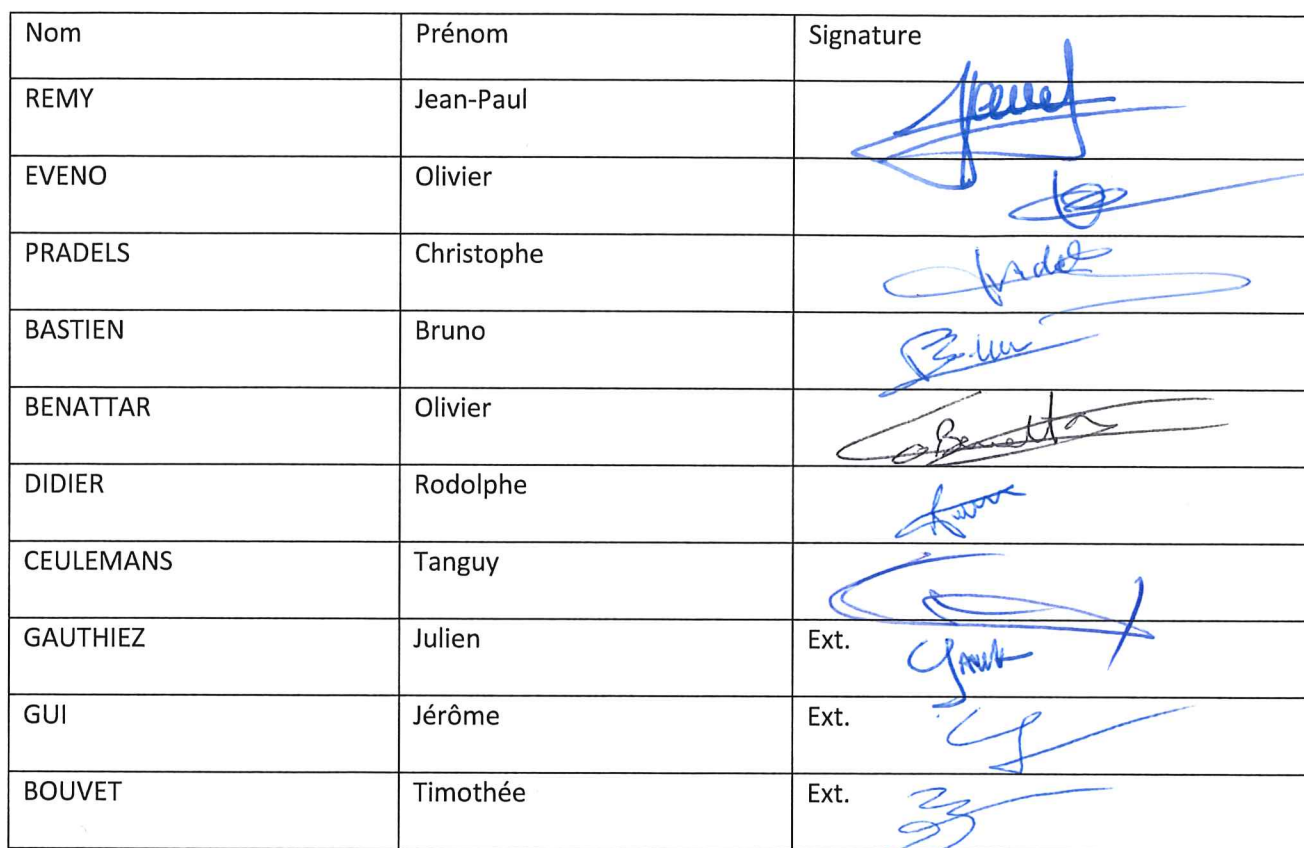 Nom Prénom Signature
REMY Jean-Paul
EVENO Olivier
PRADELS Christophe
BASTIEN Bruno
BENATTAR Olivier
DIDIER Rodolphe
CEULEMANS Tanguy
GAUTHIEZ Julien Ext.
GUI Jérôme Ext.
BOUVET Timothée Ext.